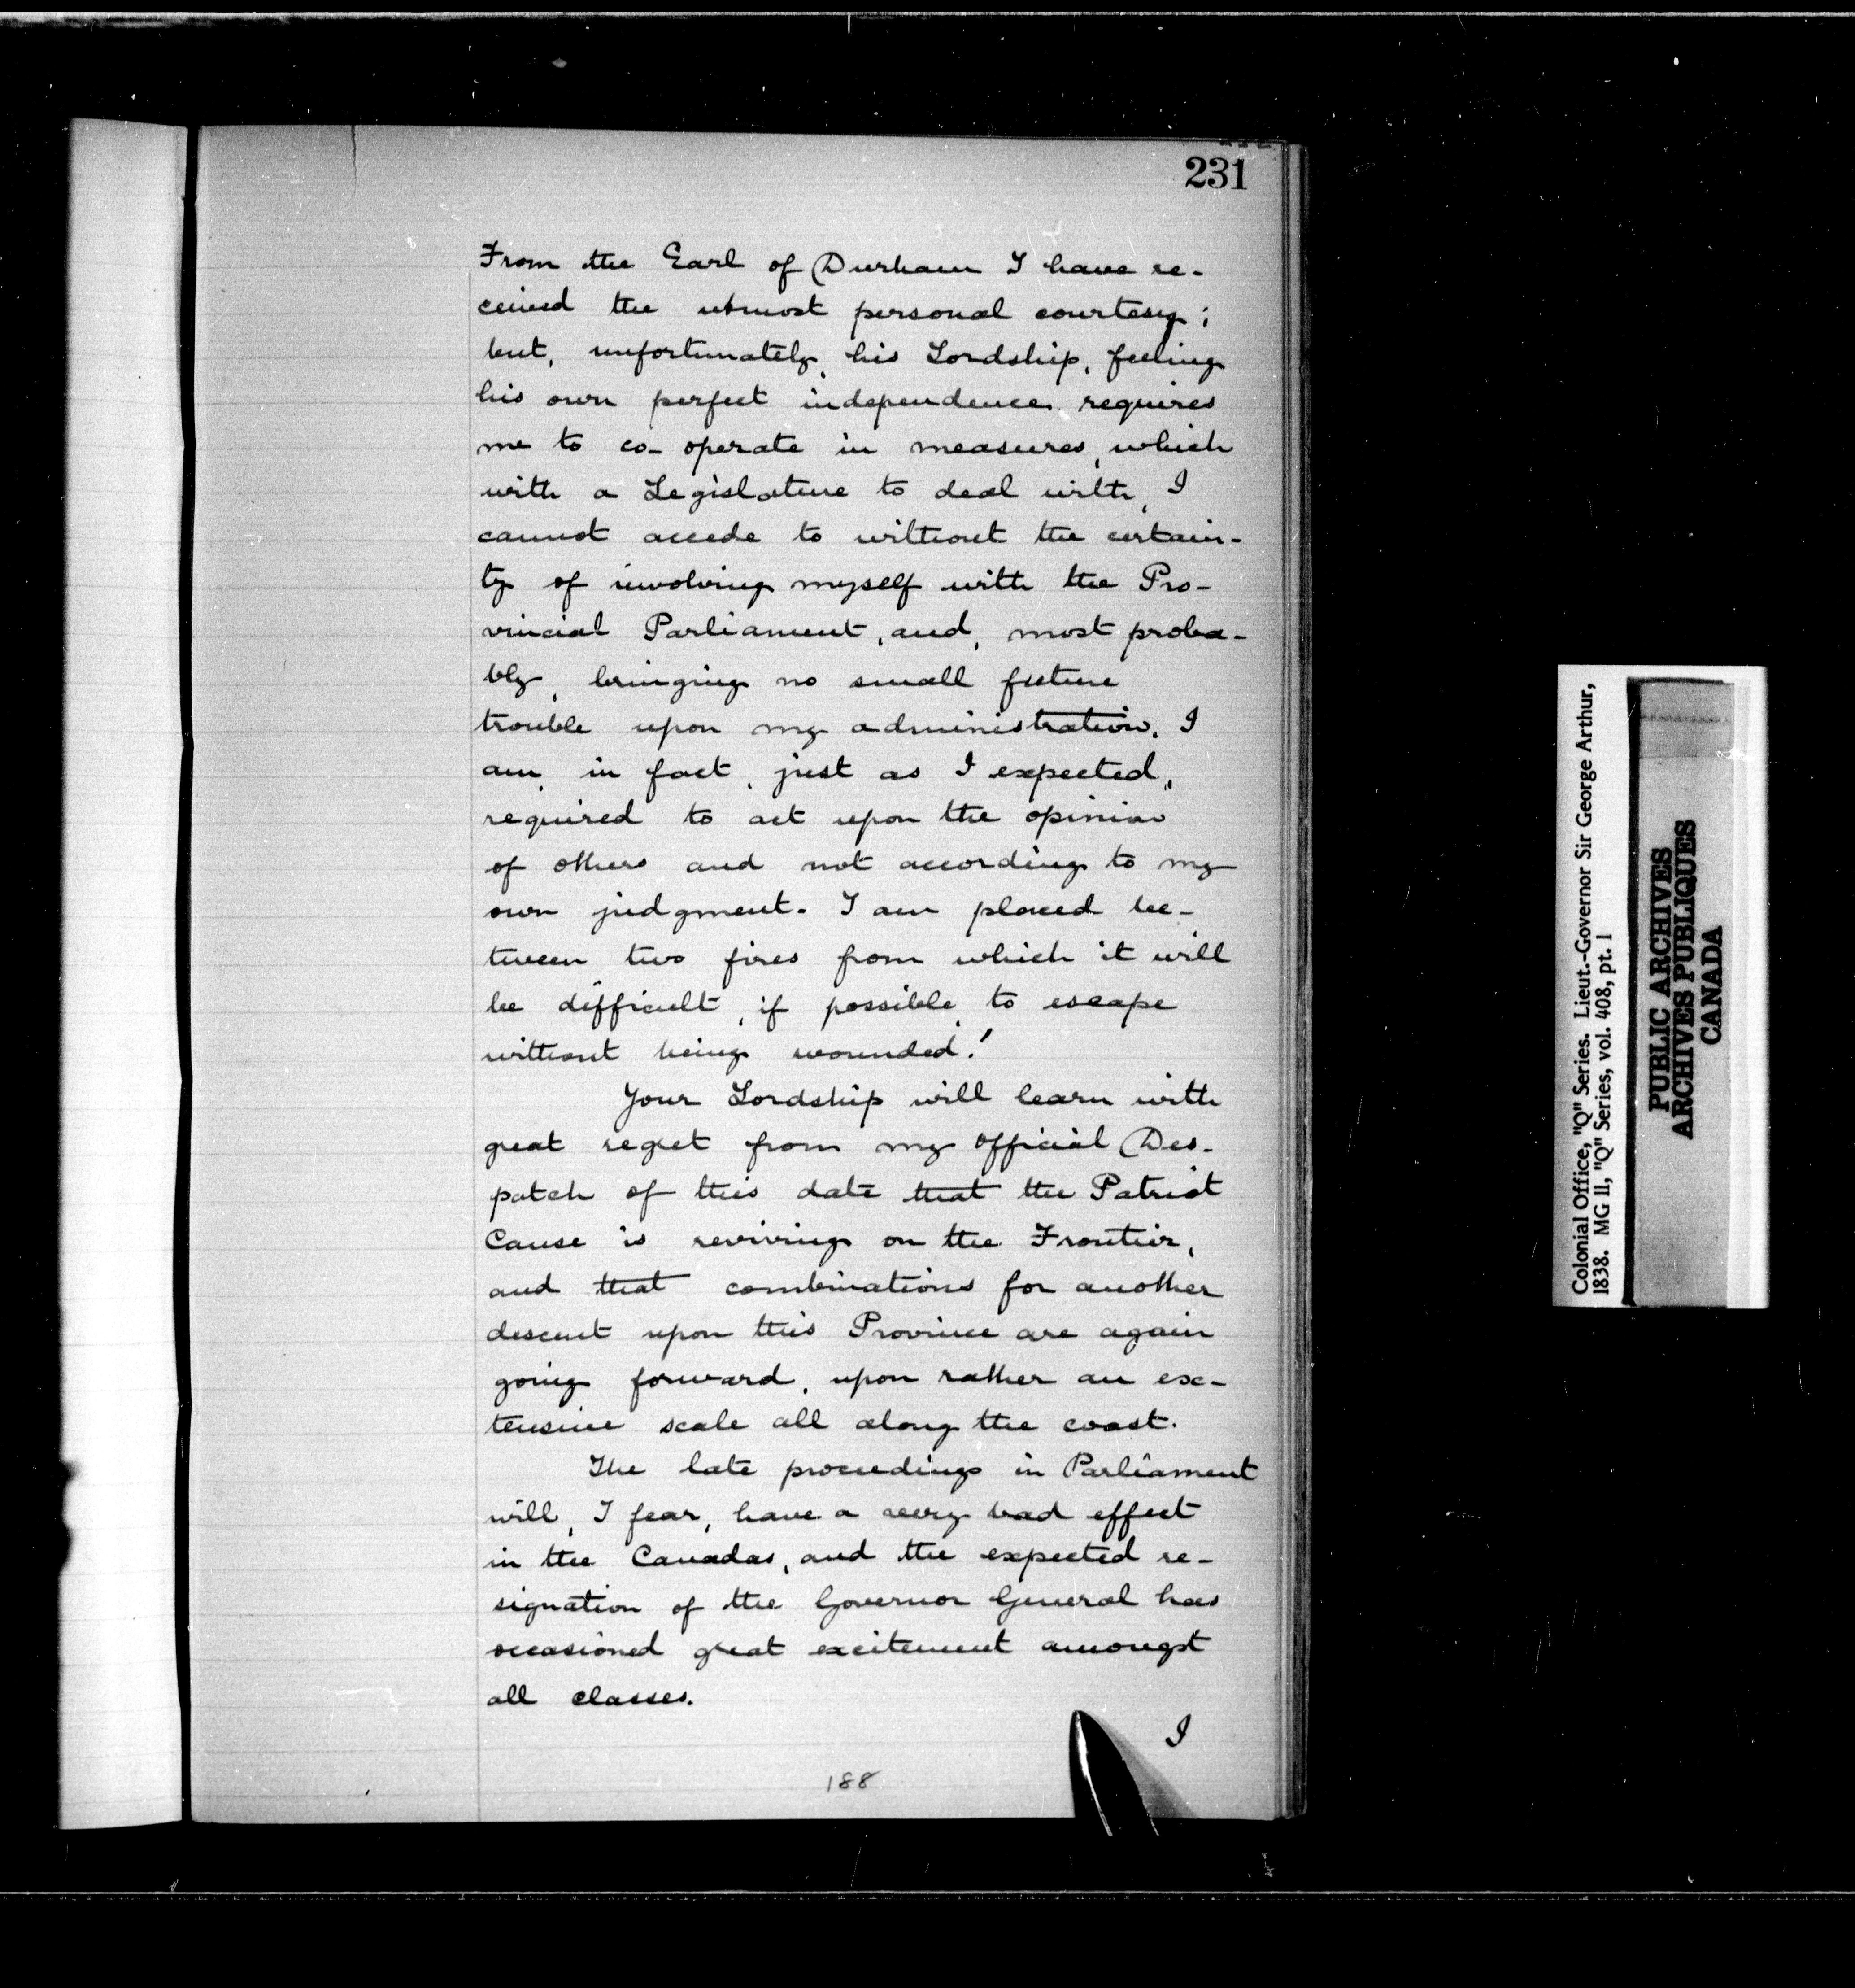 231
From the Earl of Durham I have re-
ceived the utmost personal courtesy;
but, unfortunately, his Lordship, feeling
his own perfect independence, requires
me to co-operate in measures, which
with a Legislature to deal with, I
cannot accede to without the certain-
ty of involving myself with the Pro-
vincial Parliament, and, most proba-
bly, bringing no small future
trouble upon my administration. I
am, in fact, just as I expected,
required to act upon the opinion
of others and not according to my
own judgment. I am placed be-
tween two fires from which it will
be difficult, if possible, to escape
without being wounded!
Your Lordship will learn with
great regret from my official Des-
patch of this date that the Patriot
Cause is reviving on the Frontier,
and that combinations for another
descent upon this Province are again
going forward, upon rather an ex-
tensive scale all along the coast.
The late proceedings in Parliament
will, I fear, have a very bad effect
in the Canadas, and the expected re-
signation of the Governor General has
occasioned great excitement amongst
all classes.
I
188
Colonial Office, "Q" Series. Lieut.-Governor Sir George Arthur,
1838. MG 11, "Q" Series, vol. 408, pt. 1
PUBLIC ARCHIVES
ARCHIVES PUBLIQUES
CANADA